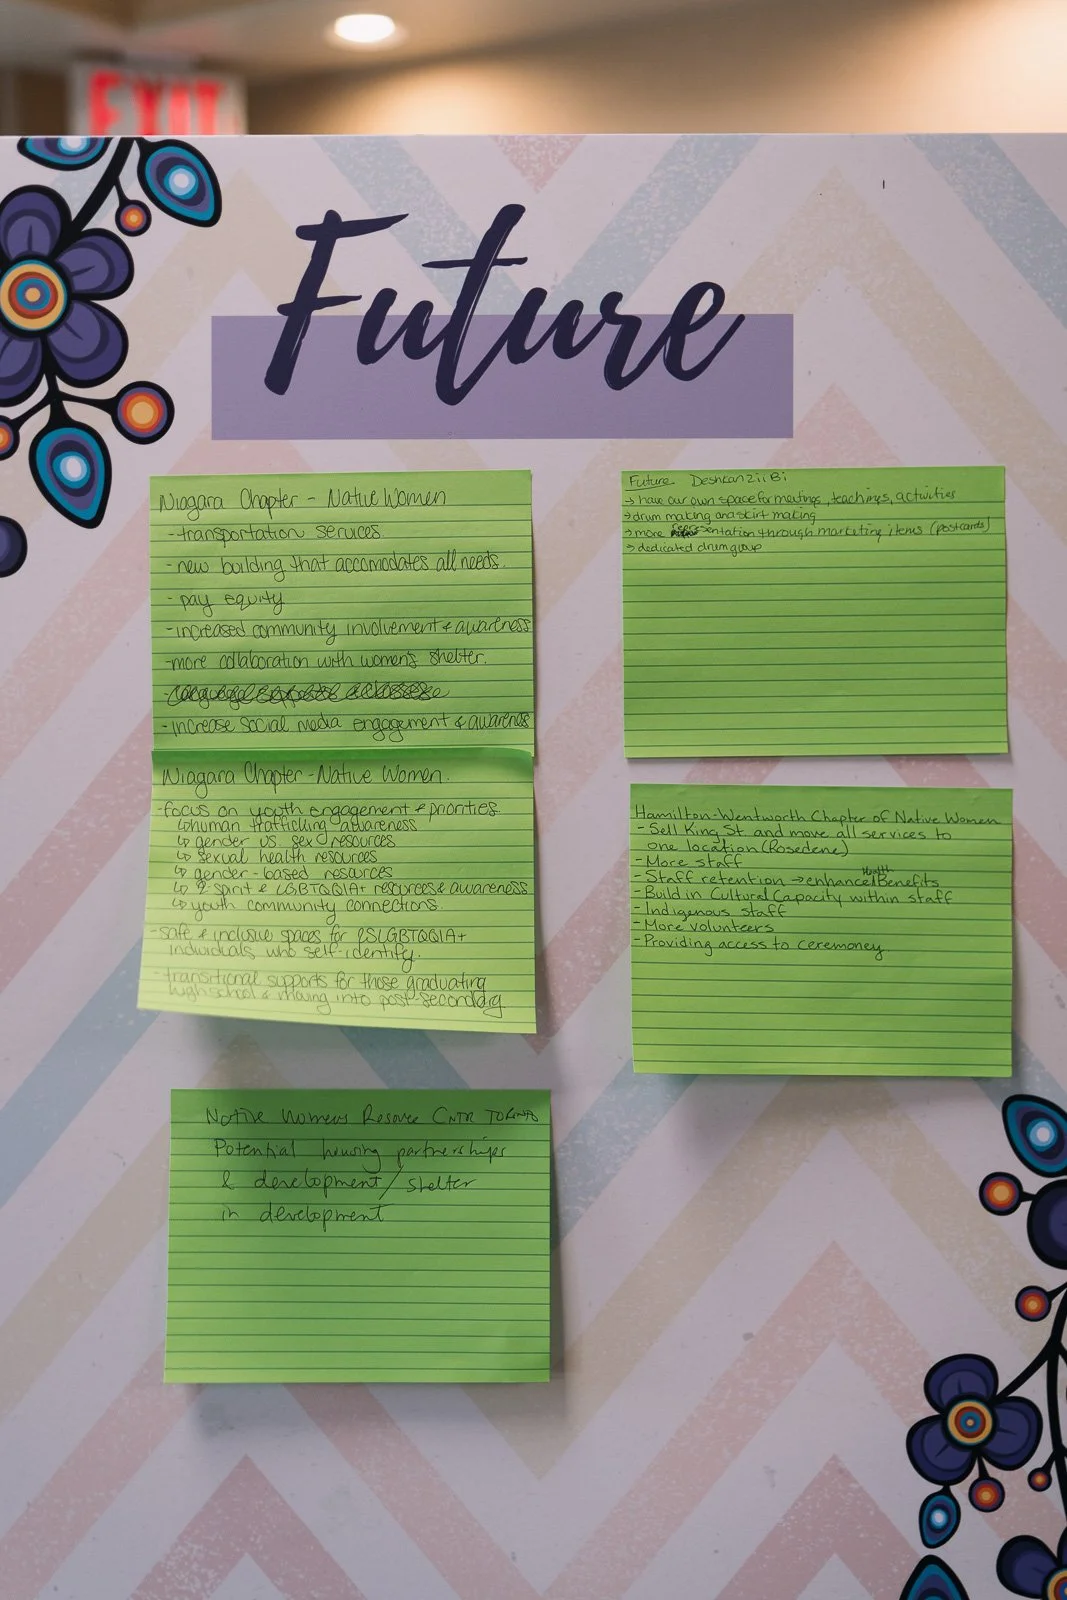 EXIT
Future
Niagara Chapter - Native Women
- transportation services
- new building that accomodates all needs.
- pay equity
- increased community involvement & awareness
- more collaboration with women's shelter.
- increase social media engagement & awareness
Niagara Chapter - Native Women.
- focus on youth engagement & priorities
↳ human trafficking awareness
↳ gender vs. sex resources
↳ sexual health resources
↳ gender-based resources
↳ 2 spirit & LGBTQQIA+ resources & awareness
↳ youth community connections.
- safe & inclusive spaces for 2SLGBTQQIA+
individuals who self-identify.
- transitional supports for those graduating
high school & moving into post-secondary
Native Womens Resource CNTR TORONTO
Potential housing partnerships
& development/shelter
in development
Future Deshkan Ziibi
→ have our own space for meetings, teachings, activities
→ drum making and skirt making
→ more representation through marketing items (postcards)
→ dedicated drum group
Hamilton-Wentworth Chapter of Native Women
- Sell King St. and move all services to
one location (Rosedene)
- More staff
- Staff retention → enhanced Health Benefits
- Build in Cultural Capacity within staff
- Indigenous staff
- More volunteers
- Providing access to ceremoney